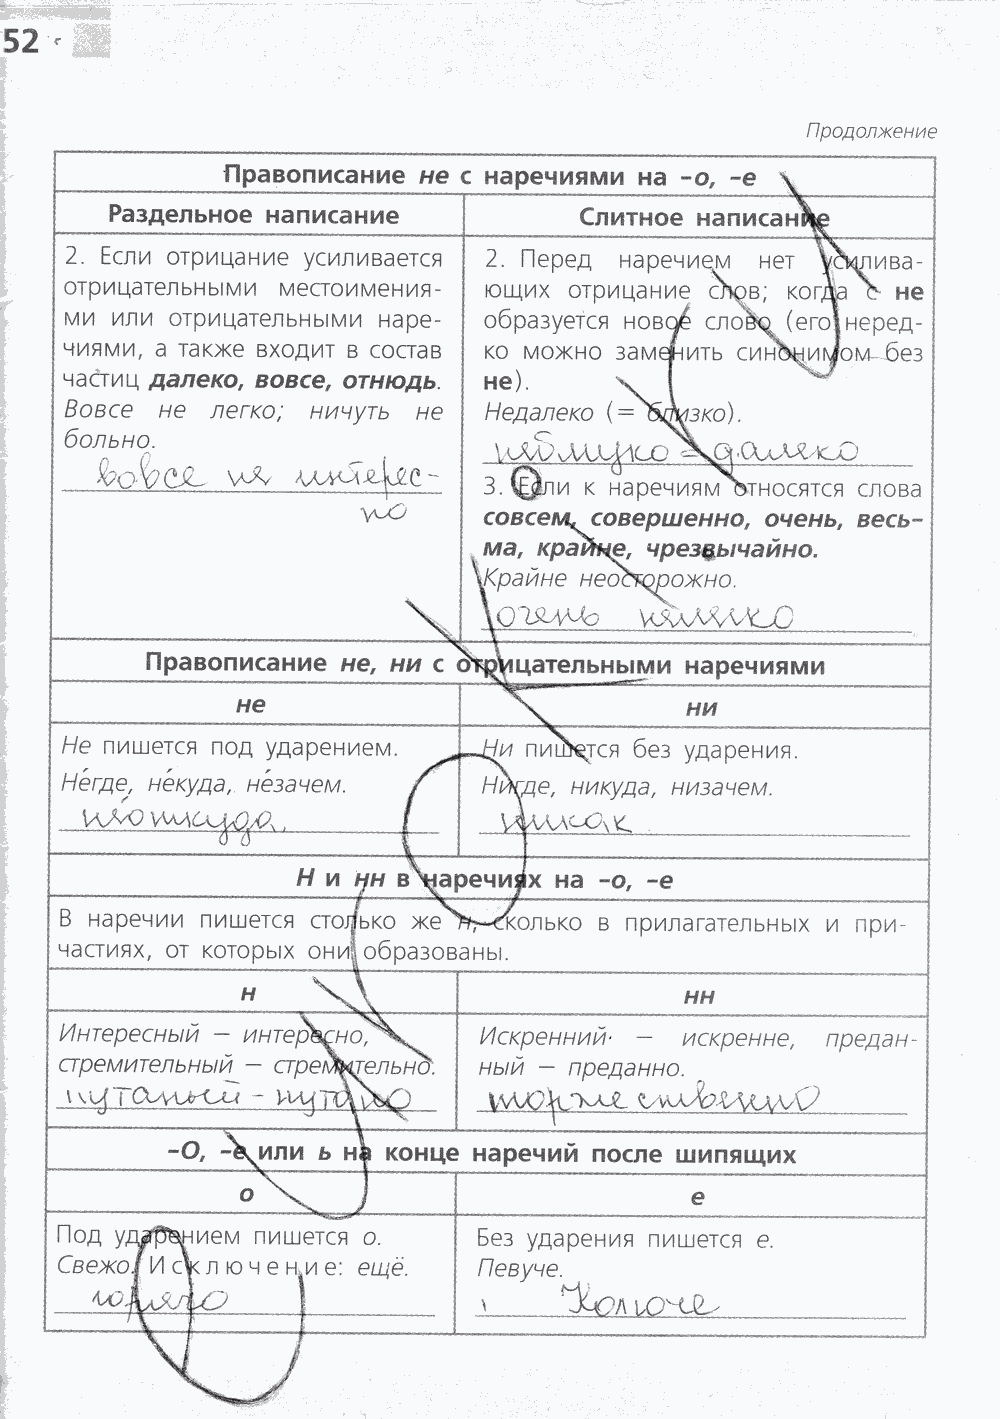 52
Продолжение
Правописание не с наречиями на –о, –е
Раздельное написание
Слитное написание
2. Если отрицание усиливается
отрицательными местоимения-
ми или отрицательными наре-
чиями, а также входит в состав
частиц далеко, вовсе, отнюдь.
Вовсе не легко; ничуть не
больно.
вовсе не интерес-
но
2. Перед наречием нет усилива-
ющих отрицание слов; когда с не
образуется новое слово (его неред-
ко можно заменить синонимом без
не).
Недалеко (= близко).
неблизко = далеко
3. Если к наречиям относятся слова
совсем, совершенно, очень, весь-
ма, крайне, чрезвычайно.
Крайне неосторожно.
очень
Правописание не, ни с отрицательными наречиями
не
ни
Не пишется под ударением.
Не́где, не́куда, не́зачем.
не́откуда
Ни пишется без ударения.
Нигде, никуда, низачем.
никак
Н и нн в наречиях на –о, –е
В наречии пишется столько же н, сколько в прилагательных и при-
частиях, от которых они образованы.
н
нн
Интересный – интересно,
стремительный – стремительно.
путаный - путано
Искренний – искренне, предан-
ный – преданно.
торжественно
–О, –е или ь на конце наречий после шипящих
о
е
Под ударением пишется о.
Свежо. Исключение: ещё.
горячо
Без ударения пишется е.
Певуче.
Колюче